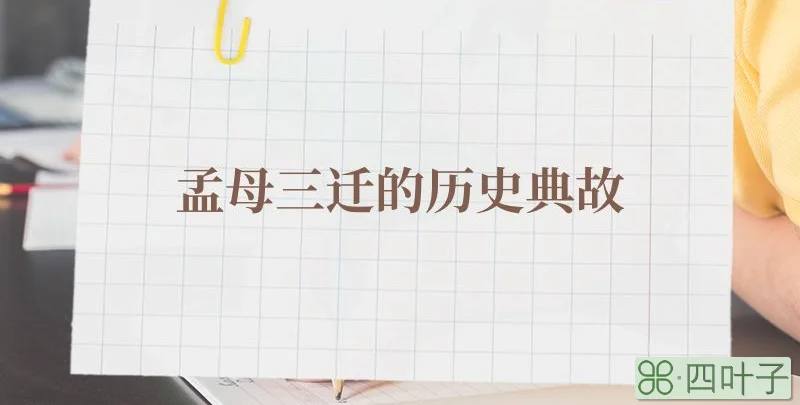 孟母三迁的历史典故
四叶子